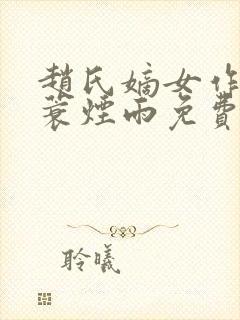 趙氏嫡女作
蓑煙雨免費
聆曦